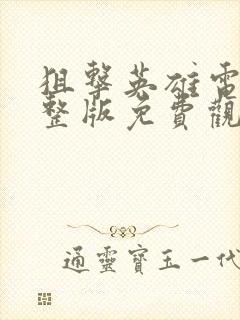 狙擊英雄電
整版免費觀
通靈寶玉一代